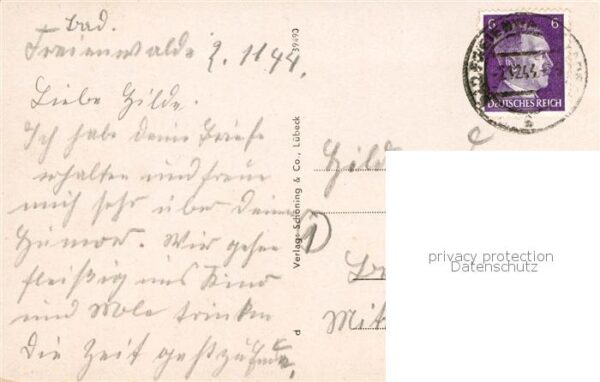 Bad.
Freienwalde 2. 11 44.
Liebe Gilde.
Ich habe deine Briefe
erhalten und freue
mich sehr über deinen
Humor. Wir gehen
fleißig ins Kino
und Mole trinken
Die Zeit geht zu Ende.
39493
Verlag: Schöning & Co., Lübeck
d
6 6
DEUTSCHES REICH
Gilde
1
Mit
privacy protection
Datenschutz